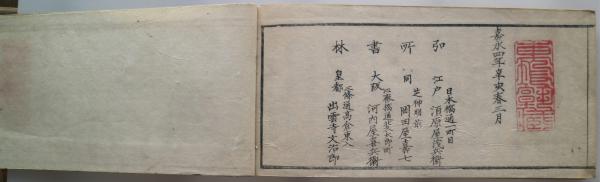 嘉永四年辛亥春三月
弘所書林
日本橋通一町目
江戸 須原屋茂兵衛
芝神明前
同 岡田屋嘉七
心斎橋通北久太郎町
大阪 河内屋喜兵衛
二條通高倉東入
皇都 出雲寺文治郎